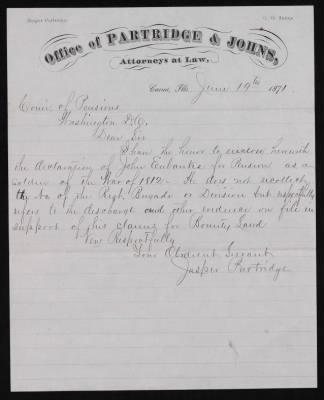 Jasper Partridge
Office of PARTRIDGE & JOHNS,
Attorneys at Law,
Carmi, Ills. June 19th 1871
Com'r of Pensions
Washington D.C.
Dear Sir
I have the honor to enclose herewith
the declaration of John Eubanks for Pension as a
soldier of the War of 1812. He does not recollect
the No of the Regt, Brigade or Division but respectfully
refers to the discharge and other evidence on file in
support of his claim for Bounty Land
Very Respectfully
Your Obedient Servant
Jasper Partridge